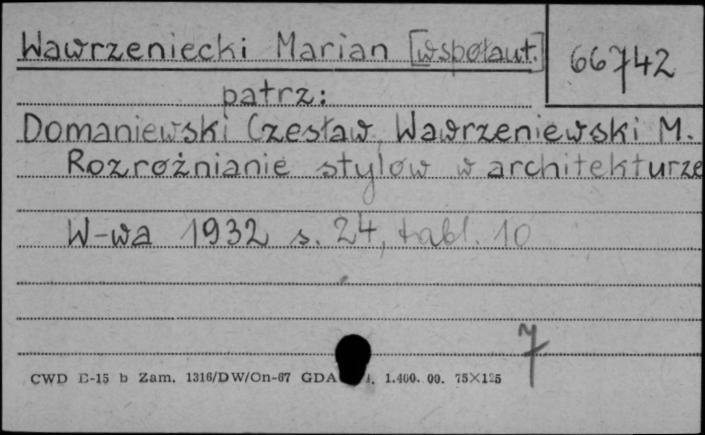 Wawrzeniecki Marian [wspołaut.]
66742
patrz:
Domaniewski Czesław, Wawrzeniewski M.
Rozrożnianie stylow w architekturze
W-wa 1932 s. 24, tabl. 10
7
CWD E-15 b Zam. 1316/DW/On-67 GDA 1.400.00. 75×125